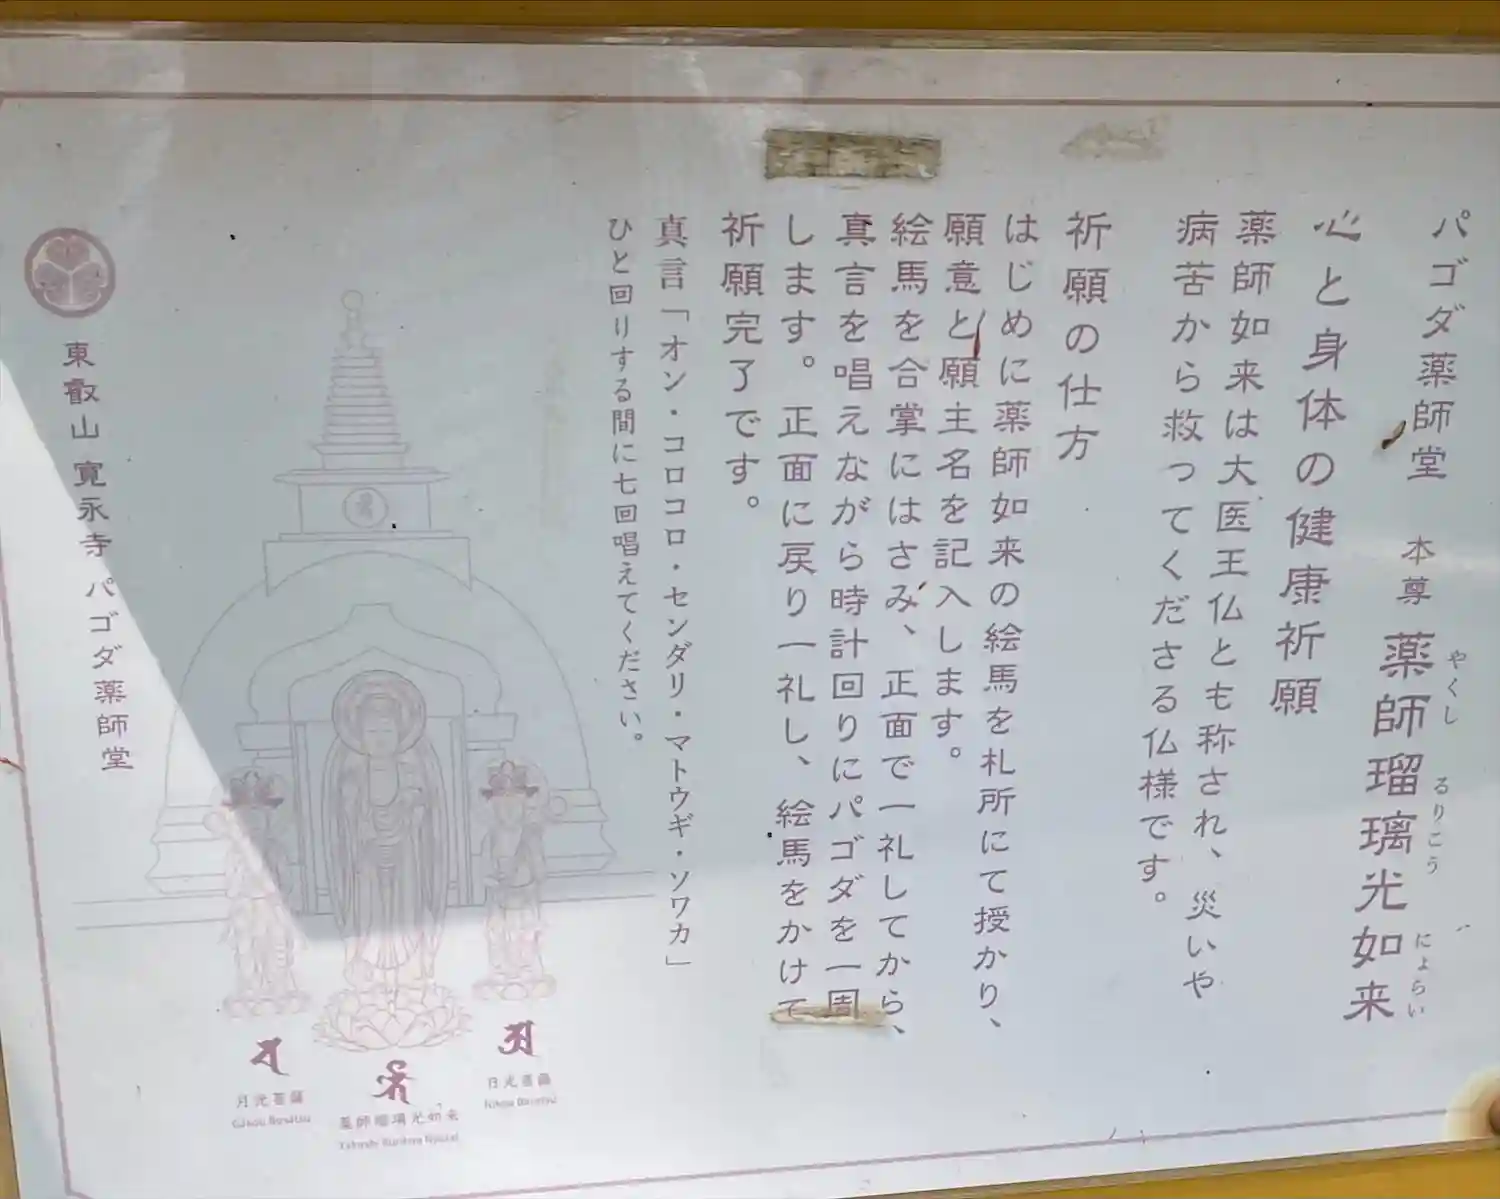 パゴダ薬師堂 本尊 薬師瑠璃光如来
やくし るりこう にょらい
心と身体の健康祈願
薬師如来は大医王仏とも称され、災いや
病苦から救ってくださる仏様です。
祈願の仕方
はじめに薬師如来の絵馬を札所にて授かり、
願意と願主名を記入します。
絵馬を合掌にはさみ、正面で一礼してから、
真言を唱えながら時計回りにパゴダを一周
します。正面に戻り一礼し、絵馬をかけて
祈願完了です。
真言「オン・コロコロ・センダリ・マトウギ・ソワカ」
ひと回りする間に七回唱えてください。
東叡山 寛永寺 パゴダ薬師堂
月光菩薩
薬師瑠璃光如来